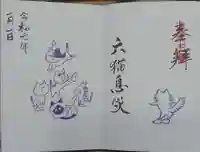 奉拝
六猫息災
令和七年
一月一日